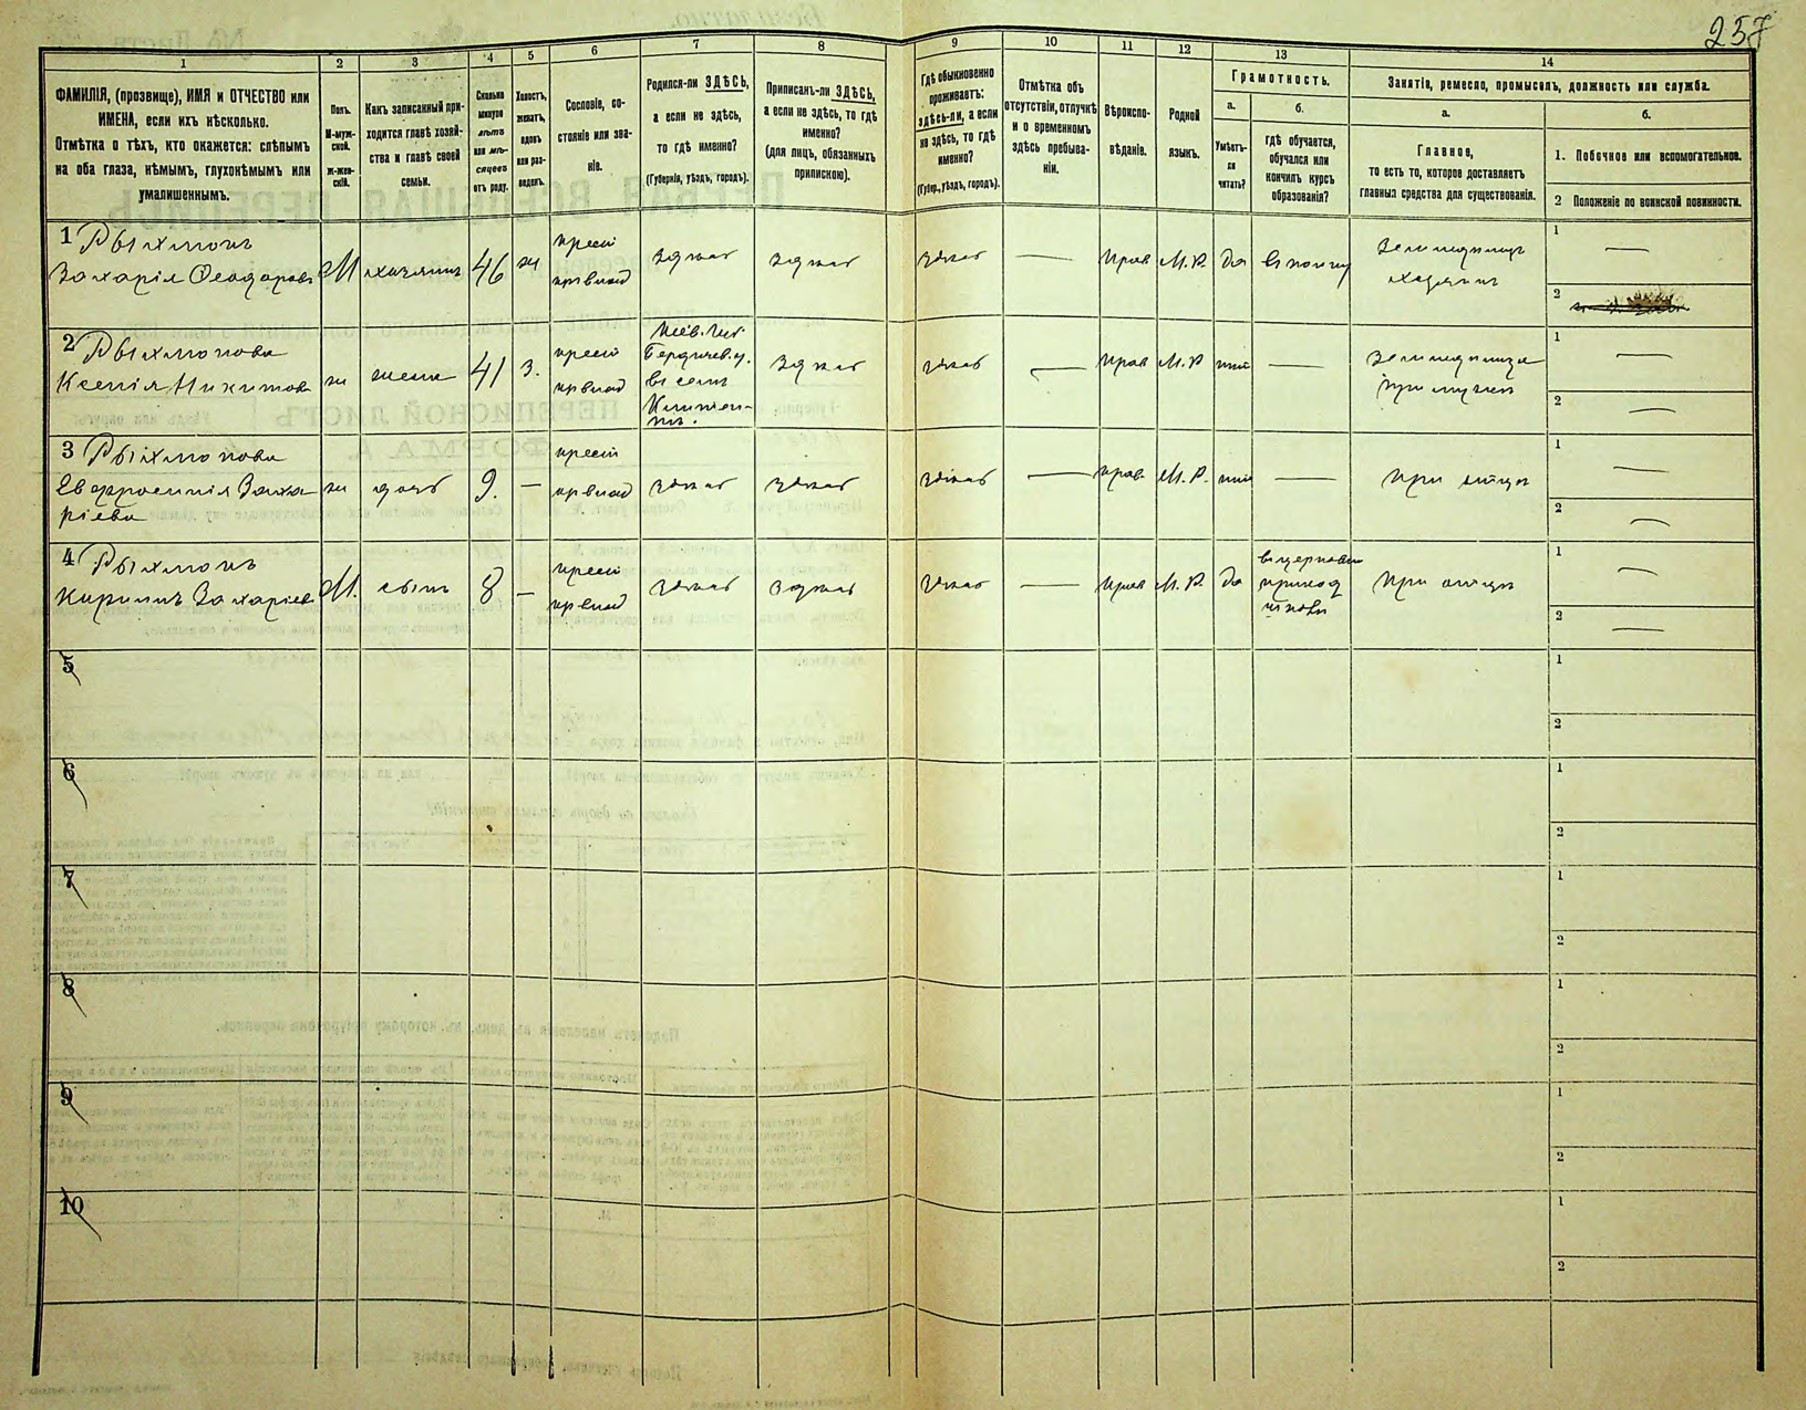 257
1
2
3
4
5
6
7
8
9
10
11
12
13
14
ФАМИЛІЯ, (прозвище), ИМЯ и ОТЧЕСТВО или
ИМЕНА, если ихъ нѣсколько.
Отмѣтка о тѣхъ, кто окажется: слѣпымъ
на оба глаза, нѣмымъ, глухонѣмымъ или
умалишеннымъ.
Полъ.
М-муж-
ской.
ж-жен-
скій.
Какъ записанный при-
ходится главѣ хозяй-
ства и главѣ своей
семьи.
Сколько
минуло
лѣтъ
или мѣ-
сяцевъ
отъ роду.
Холостъ,
женатъ,
вдовъ
или раз-
веденъ.
Сословіе, со-
стояніе или зва-
ніе.
Родился-ли ЗДѢСЬ,
а если не здѣсь,
то гдѣ именно?
(Губернія, уѣздъ, городъ).
Приписанъ-ли ЗДѢСЬ,
а если не здѣсь, то гдѣ
именно?
(для лицъ, обязанныхъ
припискою).
Гдѣ обыкновенно
проживаетъ:
здѣсь-ли, а если
не здѣсь, то гдѣ
именно?
(Губер., уѣздъ, городъ).
Отмѣтка объ
отсутствіи, отлучкѣ
и о временномъ
здѣсь пребыва-
ніи.
Вѣроиспо-
вѣданіе.
Родной
языкъ.
Грамотность.
а.
б.
Умѣетъ-
ли
читать?
гдѣ обучается,
обучался или
кончилъ курсъ
образованія?
Занятіе, ремесло, промыселъ, должность или служба.
а.
б.
Главное,
то есть то, которое доставляетъ
главныя средства для существованія.
1. Побочное или вспомогательное.
2 Положеніе по воинской повинности.
1 Рыхмонъ
Захарія Ѳеодоровъ
М
хазяинъ
46
ж
крест
здѣсь
здѣсь
здѣсь
—
прав
М.Р.
да
хазяинъ
1
—
2
2 Рыхмонова
Ксенія Никитов
ж
жена
41
з.
крест
Кіев. Губ.
Бердичев. у.
въ селѣ
здѣсь
здѣсь
—
прав
М.Р.
—
при мужѣ
1
—
2
—
3 Рыхмонова
Евфросинія Заха
ріева
ж
дочь
9.
—
крест
здѣсь
здѣсь
здѣсь
—
прав.
М.Р.
—
при отцѣ
1
—
2
—
4 Рыхмонъ
Кирилъ Захаріев
М.
сынъ
8
—
крест
здѣсь
здѣсь
здѣсь
—
прав
М.Р.
да
въ церковно
приход
школѣ
при отцѣ
1
—
2
—
5
1
2
6
1
2
7
1
2
8
1
2
9
1
2
10
1
2